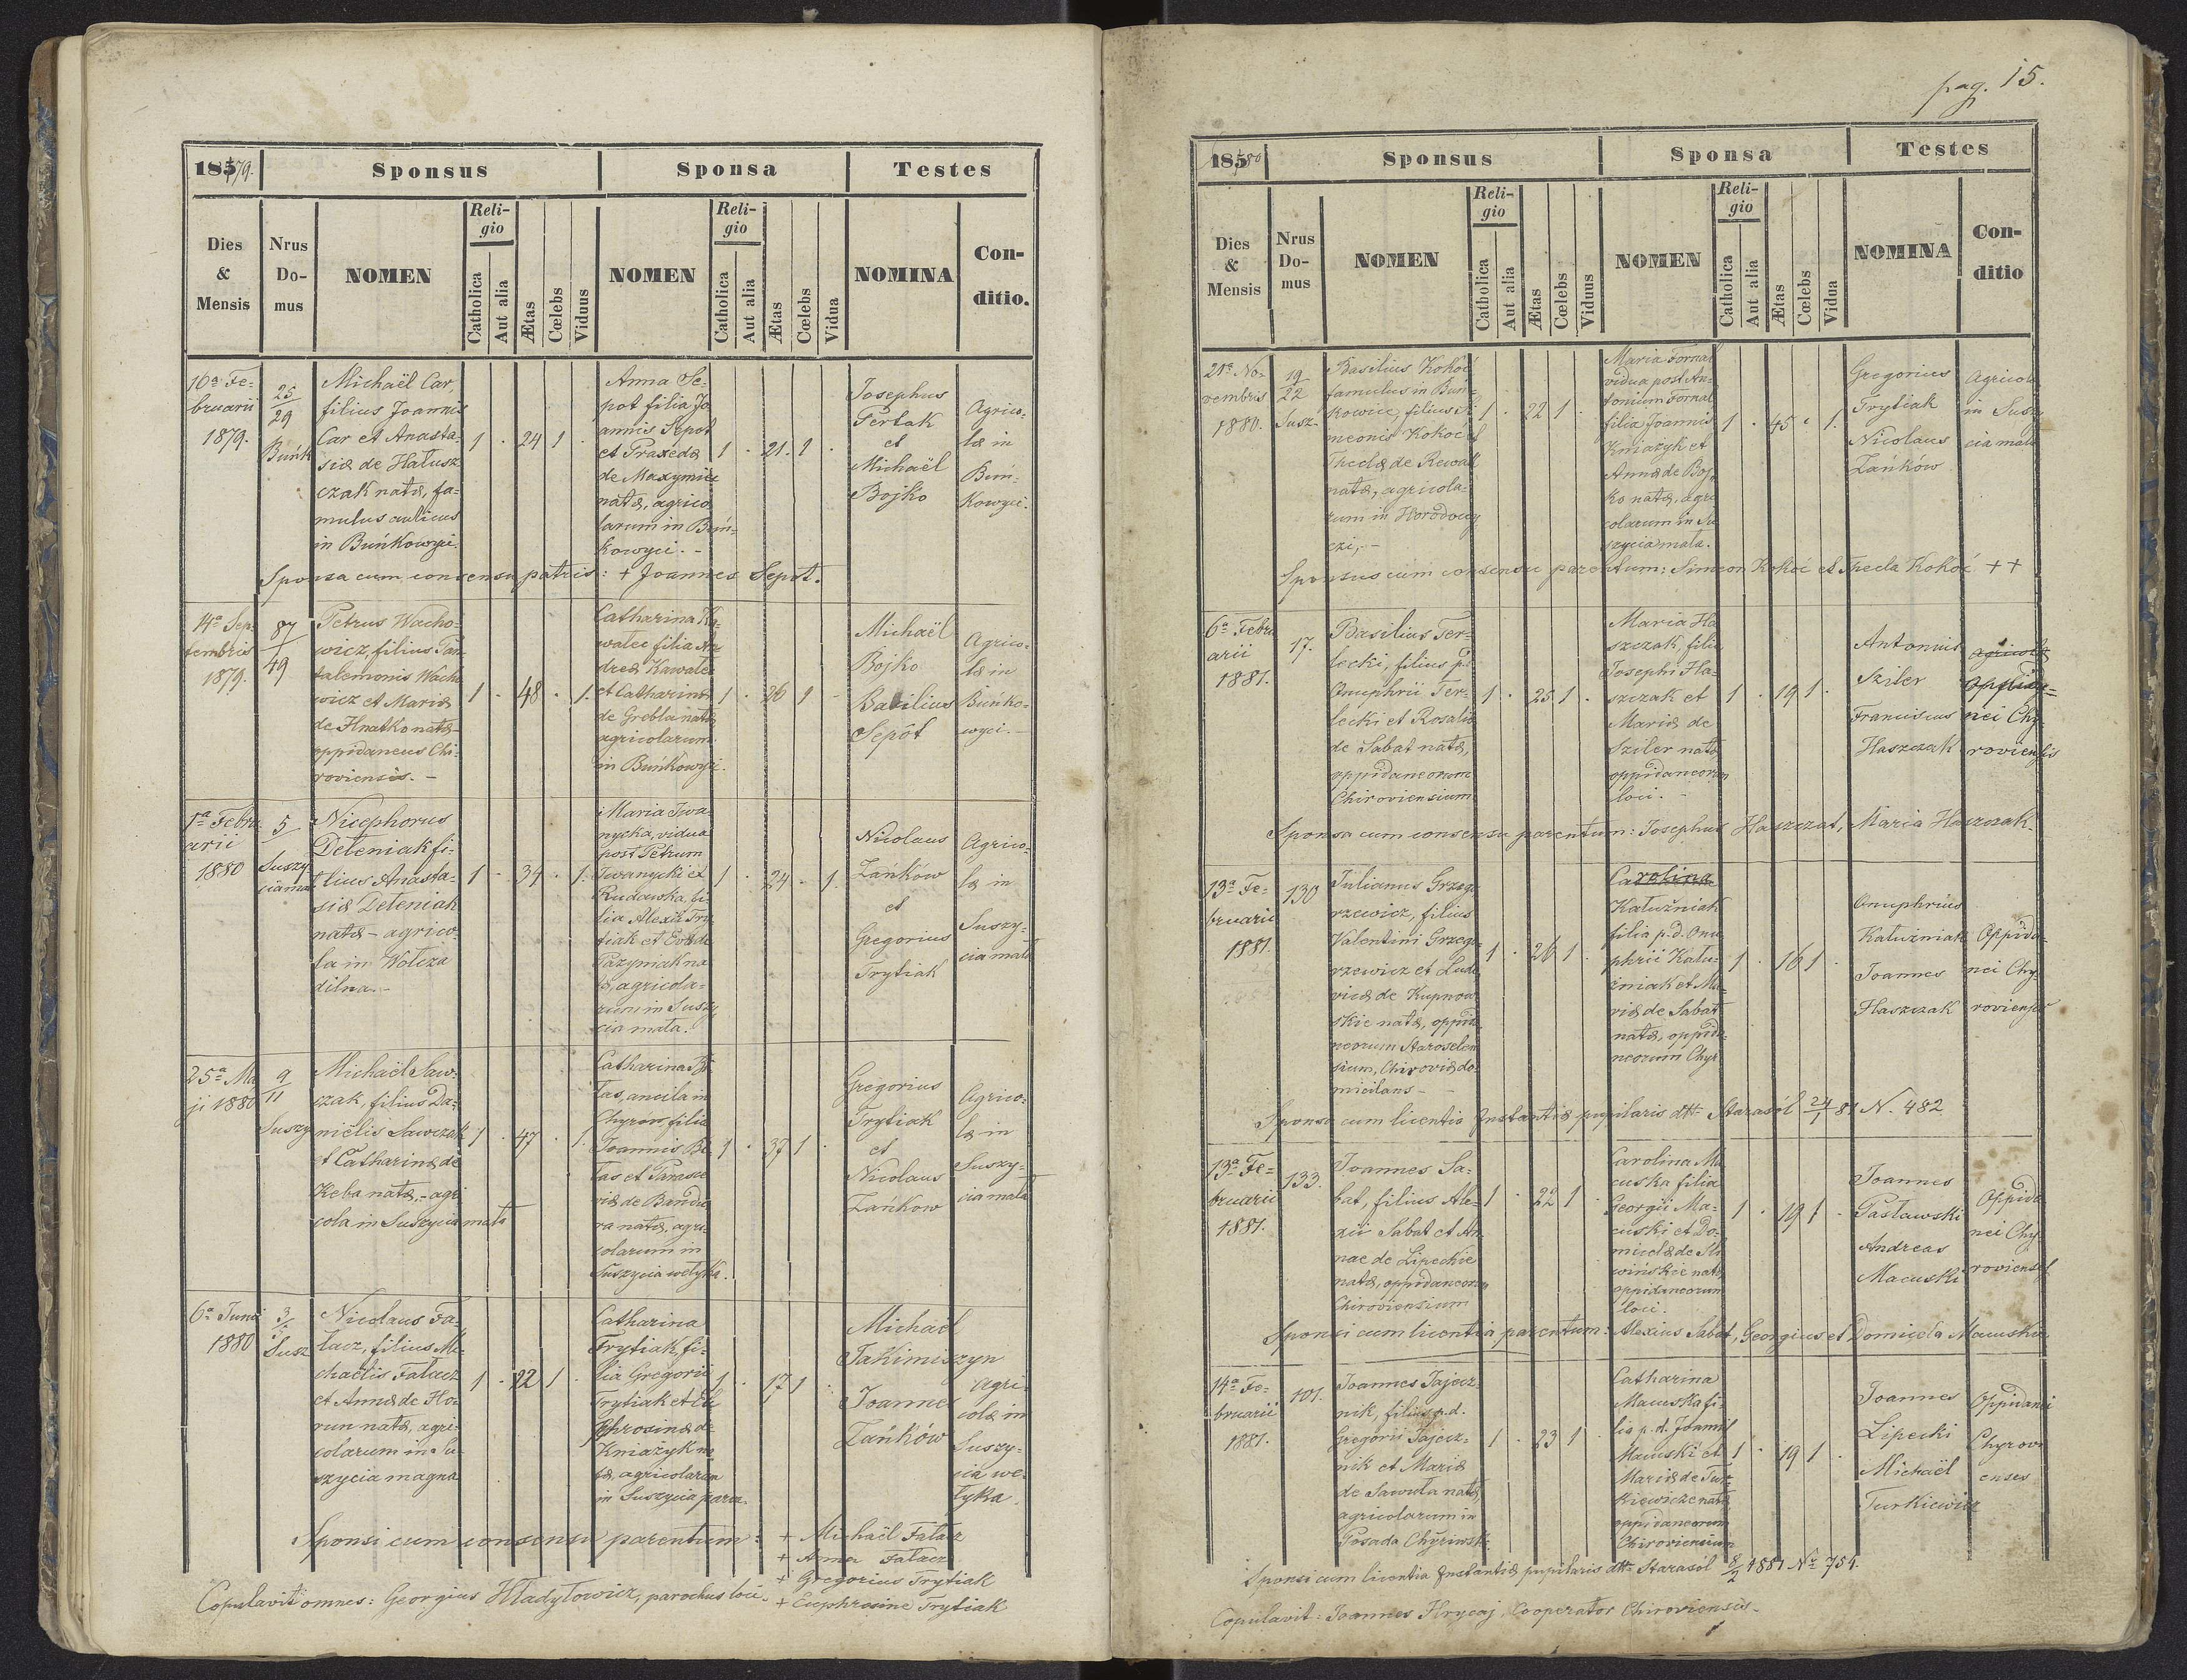 1879.
Sponsus
Sponsa
Testes
Dies & Mensis
Nrus Do- mus
NOMEN
Reli- gio
Catholica
Aut alia
Ætas
Cœlebs
Viduus
NOMEN
Reli- gio
Catholica
Aut alia
Ætas
Cœlebs
Vidua
NOMINA
Con- ditio.
16a Fe-
bruarii
1879.
25
29
Buńk
Michaël Car
filius Joannis
Car et Anasta-
siæ de Hałusz
czak natæ, fa-
mulus aulicus
in Buńkowyci.
1 · 24 1 ·
Anna Se-
pot filia Jo
annis Sepot
et Praxedæ
de Maxymiec
natæ, agrico
larum in Buń-
kowyci. -
1 · 21 · 1 ·
Josephus
Perłak
et
Michaël
Bojko
Agrico-
læ in
Buń-
kowyci.
Sponsa cum consensu patris: + Joannes Sepot.
14a Sep.
tembris
1879.
87
49
Petrus Wacho-
wicz, filius Pan-
talemonis Wacho
wicz et Mariæ
de Hnatko natæ
oppidaneus Chi-
roviensis. -
1 · 48 · 1.
Catharina Ko-
walec filia An
dreæ Kowalec
et Catharinæ
de Grobla natæ
agricolarum
in Buńkowyci.
1 · 26 1 -
Michaël
Bojko
Basilius
Sepôt
Agrico-
læ in
Buńko-
wyci. -
1a Febru
arii
1880
5
Suszy
cia mał
Nicephorus
Deteniak fi-
lius Anasta-
siæ Deteniak
natæ - agrico-
la in Wołcza
dilna. -
1 · 34 · 1.
Maria Iwa-
nycka, vidua
post Petrum
Iwanycki ex
Rudawka, fi-
lia Alexii Try
tiak et Evæ de
Pazyniak na
tæ, agricola-
rum in Suszy
cia mała.
1 · 24 · 1.
Nicolaus
Zańków
et
Gregorius
Trytiak
Agrico-
læ in
Suszy-
cia mała
25a Ma
ji 1880
9
11
Suszy
Michaël Saw-
czak, filius Da-
nielis Sawczak
et Catharinæ de
Keba natæ, - agri
cola in Suszycia mała
1 · 47 · 1.
Catharina Bi-
las, ancila in
Chyrów, filia
Joannis Bi-
las et Paraske
viæ de Bandu
ra natæ, agri-
colarum in
Suszycia wełyka.
1 · 37 1
Gregorius
Trytiak
et
Nicolaus
Zańkow
Agrico-
læ in
Suszy-
cia mała
6a Junii
1880
3
Susz
Nicolaus Fa-
łacz, filius Mi-
chaëlis Fałacz
et Annæ de Ho-
run natæ, agri-
colarum in Su-
szycia magna
1 · 22 1
Catharina
Trytiak, fi-
lia Gregorii
Trytiak et Eu
phrosinæ de
Kniażyk na
tæ, agricolarum
in Suszycia parva.
1 · 17 1 ·
Michael
Jakimiszyn
Joannes
Zańków
Agri-
colæ in
Suszy-
cia we-
łyka.
Sponsi cum consensu parentum: + Michaël Fałacz
+ Anna Fałacz
+ Gregorius Trytiak
+ Euphrosine Trytiak
Copulavit omnes: Georgius Hładyłowicz, parochus loci.
pag. 15.
1880
Sponsus
Sponsa
Testes
Dies & Mensis
Nrus Do- mus
NOMEN
Reli- gio
Catholica
Aut alia
Ætas
Cœlebs
Viduus
NOMEN
Reli- gio
Catholica
Aut alia
Ætas
Cœlebs
Vidua
NOMINA
Con- ditio
21a No-
vembris
1880.
19
22
Susz.
Basilius Kokoć
famulus in Buń-
kowice, filius Si
meonis Kokoć et
Theclæ de Kowal
natæ, agricola-
rum in Horodowy
czi, -
1 · 22 1 ·
Maria Fornal
vidua post An-
tonium Fornal
filia Joannis
Kniażyk et
Annæ de Boj-
ko natæ, agri
colarum in Su
szycia mała.
1 · 45 · 1.
Gregorius
Trytiak
Nicolaus
Zańków
Agricolæ
in Suszy
cia mała
Sponsus cum consensu parentum: Simeon Kokoć et Thecla Kokoć ++
6a Febru
arii
1881.
17.
Basilius Ter-
lecki, filius p.
Onuphrii Ter-
lecki et Rosaliæ
de Sabat natæ,
oppidaneorum
Chiroviensium
1 · 25 1 ·
Maria Ha
szczak, filia
Josephi Ha-
szczak et
Mariæ de
Sziler natæ
oppidaneorum
loci. -
1 · 19 1 ·
Antonius
Sziler
Franciscus
Haszczak
agricolæ
Oppida-
nei Chy-
roviensis
Sponsa cum consensu parentum: Josephus Haszczak, Maria Haszczak
13a Fe-
bruarii
1881.
130
Julianus Grzego
rzewicz, filius
Valentini Grzego-
rzewicz et Ludo
vicæ de Kupnow
skie natæ, oppida
neorum Starosolen
sium, Chiroviæ do-
micilans -
1 · 26 1 ·
Carolina
Kałużniak
filia p. d. Onu
phrii Kału-
żniak et Ma-
riæ de Sabat
natæ, oppida-
neorum Chyr
1 · 16 1 ·
Onuphrius
Kałużniak
Joannes
Haszczak
Oppida-
nei Chy-
rovienses
Sponsa cum licentia Instantiæ pupilaris dtto Starasól 24/1 81 N. 482
13a Fe-
bruarii
1881.
133.
Joannes Sa-
bat, filius Ale-
xii Sabat et An
nae de Lipeckie
natæ, oppidaneorum
Chiroviensium
1 · 22 1 ·
Carolina Ma
cuska filia
Georgii Ma-
cuski et Do-
micelæ de Sli
wińskie natæ
oppidaneorum
loci.
1 · 19 1 ·
Joannes
Pasławski
Andreas
Macuski
Oppida
nei Chy
rovienses
Sponsi cum licentia parentum: Alexius Sabat, Georgius et Domicela Macuska
14a Fe-
bruarii
1881.
101.
Joannes Jajecz-
nik, filius p. d.
Gregorii Jajecz-
nik et Mariæ
de Sawuła natæ,
agricolarum in
Posada Chyriwsk.
1 · 23 1 ·
Catharina
Macuska fi-
lia p. d. Joannis
Macuski et
Mariæ de Tur
kiewicze natæ
oppidaneorum
Chiroviensium
1 · 19 1 ·
Joannes
Lipecki
Michaël
Turkiewicz
Oppidanei
Chyrovi
enses
Sponsi cum licentia Instantiæ pupilaris dtto Starasól 8/2 1881 No 754.
Copulavit: Joannes Hrycaj, Cooperator Chiroviensis.